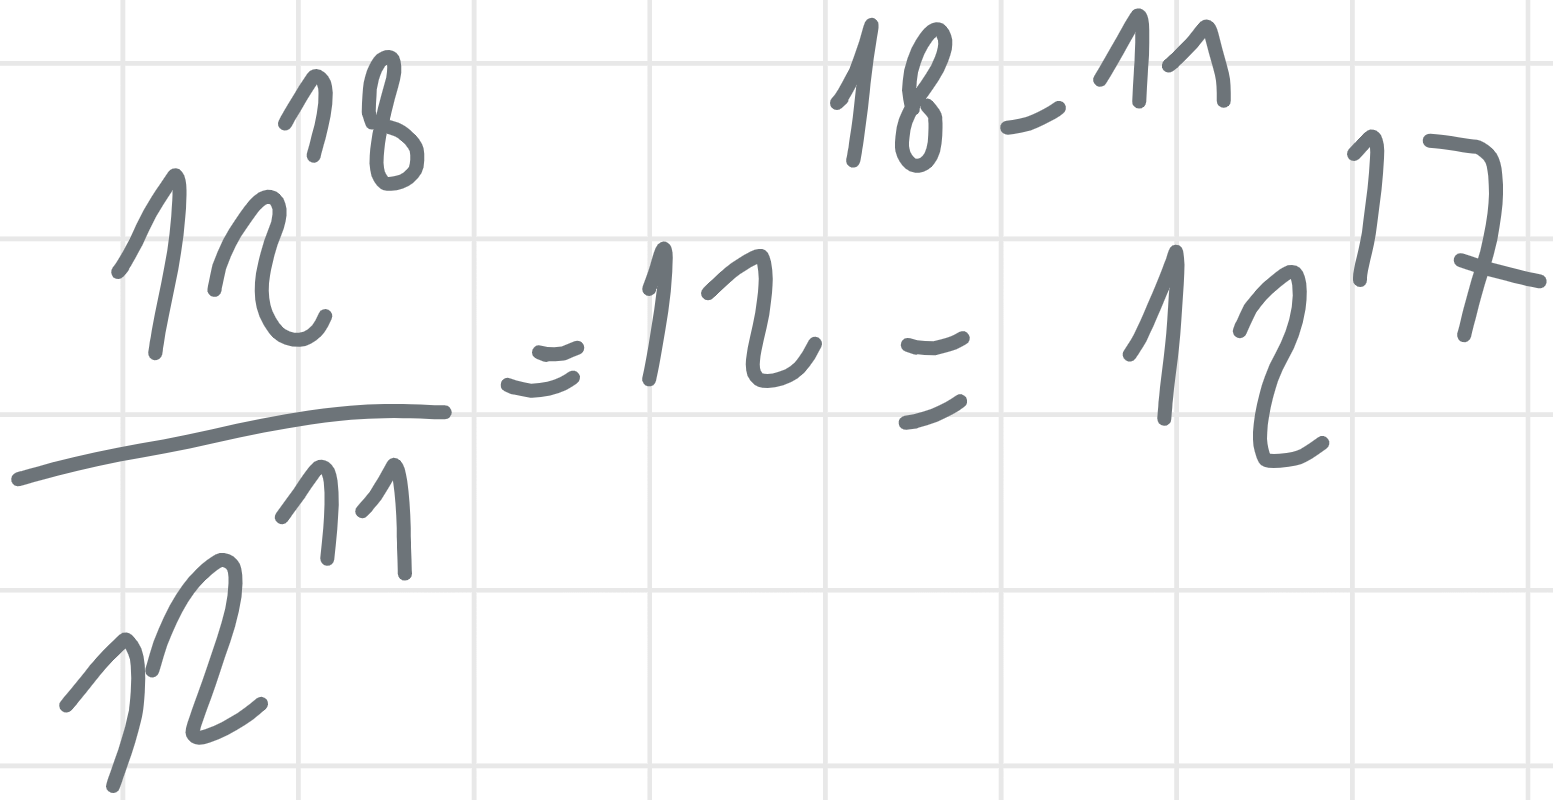 12^18 / 12^11 = 12^18-11 = 12^17